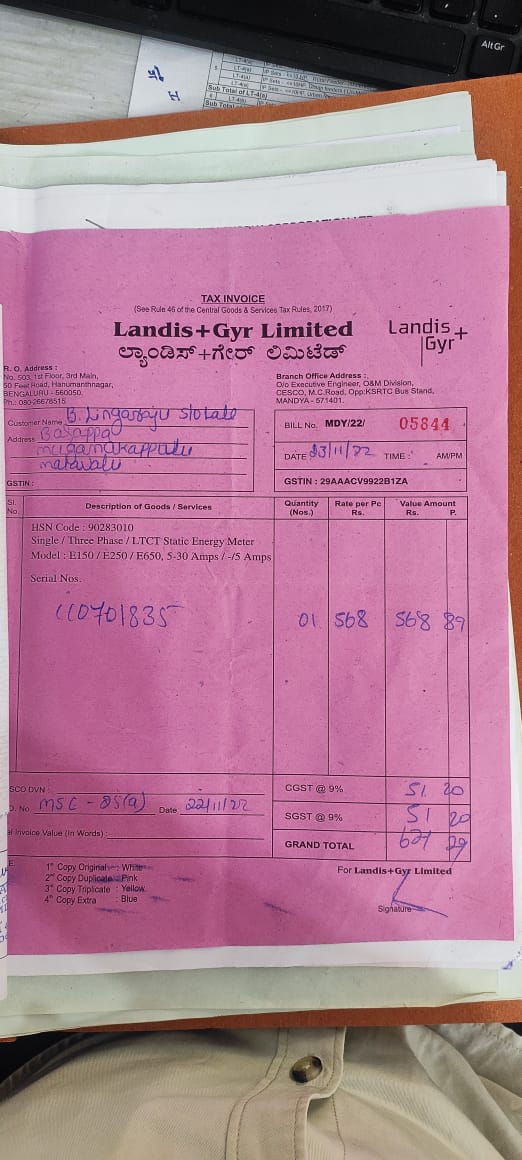 AltGr
Sub Total of LT-4(a)
TAX INVOICE
(See Rule 46 of the Central Goods & Services Tax Rules, 2017)
Landis+Gyr Limited
ಲ್ಯಾಂಡಿಸ್+ಗೇರ್ ಲಿಮಿಟೆಡ್
Landis+
Gyr
R. O. Address :
No. 503, 1st Floor, 3rd Main,
50 Feet Road, Hanumanthnagar,
BENGALURU - 560050.
Ph.: 080-26678515
Branch Office Address :
O/o Executive Engineer, O&M Division,
CESCO, M.C.Road, Opp:KSRTC Bus Stand,
MANDYA - 571401.
Customer Name B. Lingaraju S/o Late
Address Basappa
GSTIN :
BILL No. MDY/22/ 05844
DATE 23/11/22 TIME : AM/PM
GSTIN : 29AAACV9922B1ZA
Sl. No. Description of Goods / Services Quantity (Nos.) Rate per Pc Rs. Value Amount Rs. P.
HSN Code : 90283010
Single / Three Phase / LTCT Static Energy Meter
Model : E150 / E250 / E650, 5-30 Amps / -/5 Amps
Serial Nos.
110701835 01 568 568 89
SCO DVN
CGST @ 9% 51 20
No. Date 22/11/22
SGST @ 9% 51 20
Invoice Value (In Words) :
GRAND TOTAL 29
1st Copy Original : White
2nd Copy Duplicate : Pink
3rd Copy Triplicate : Yellow
4th Copy Extra : Blue
For Landis+Gyr Limited
Signature